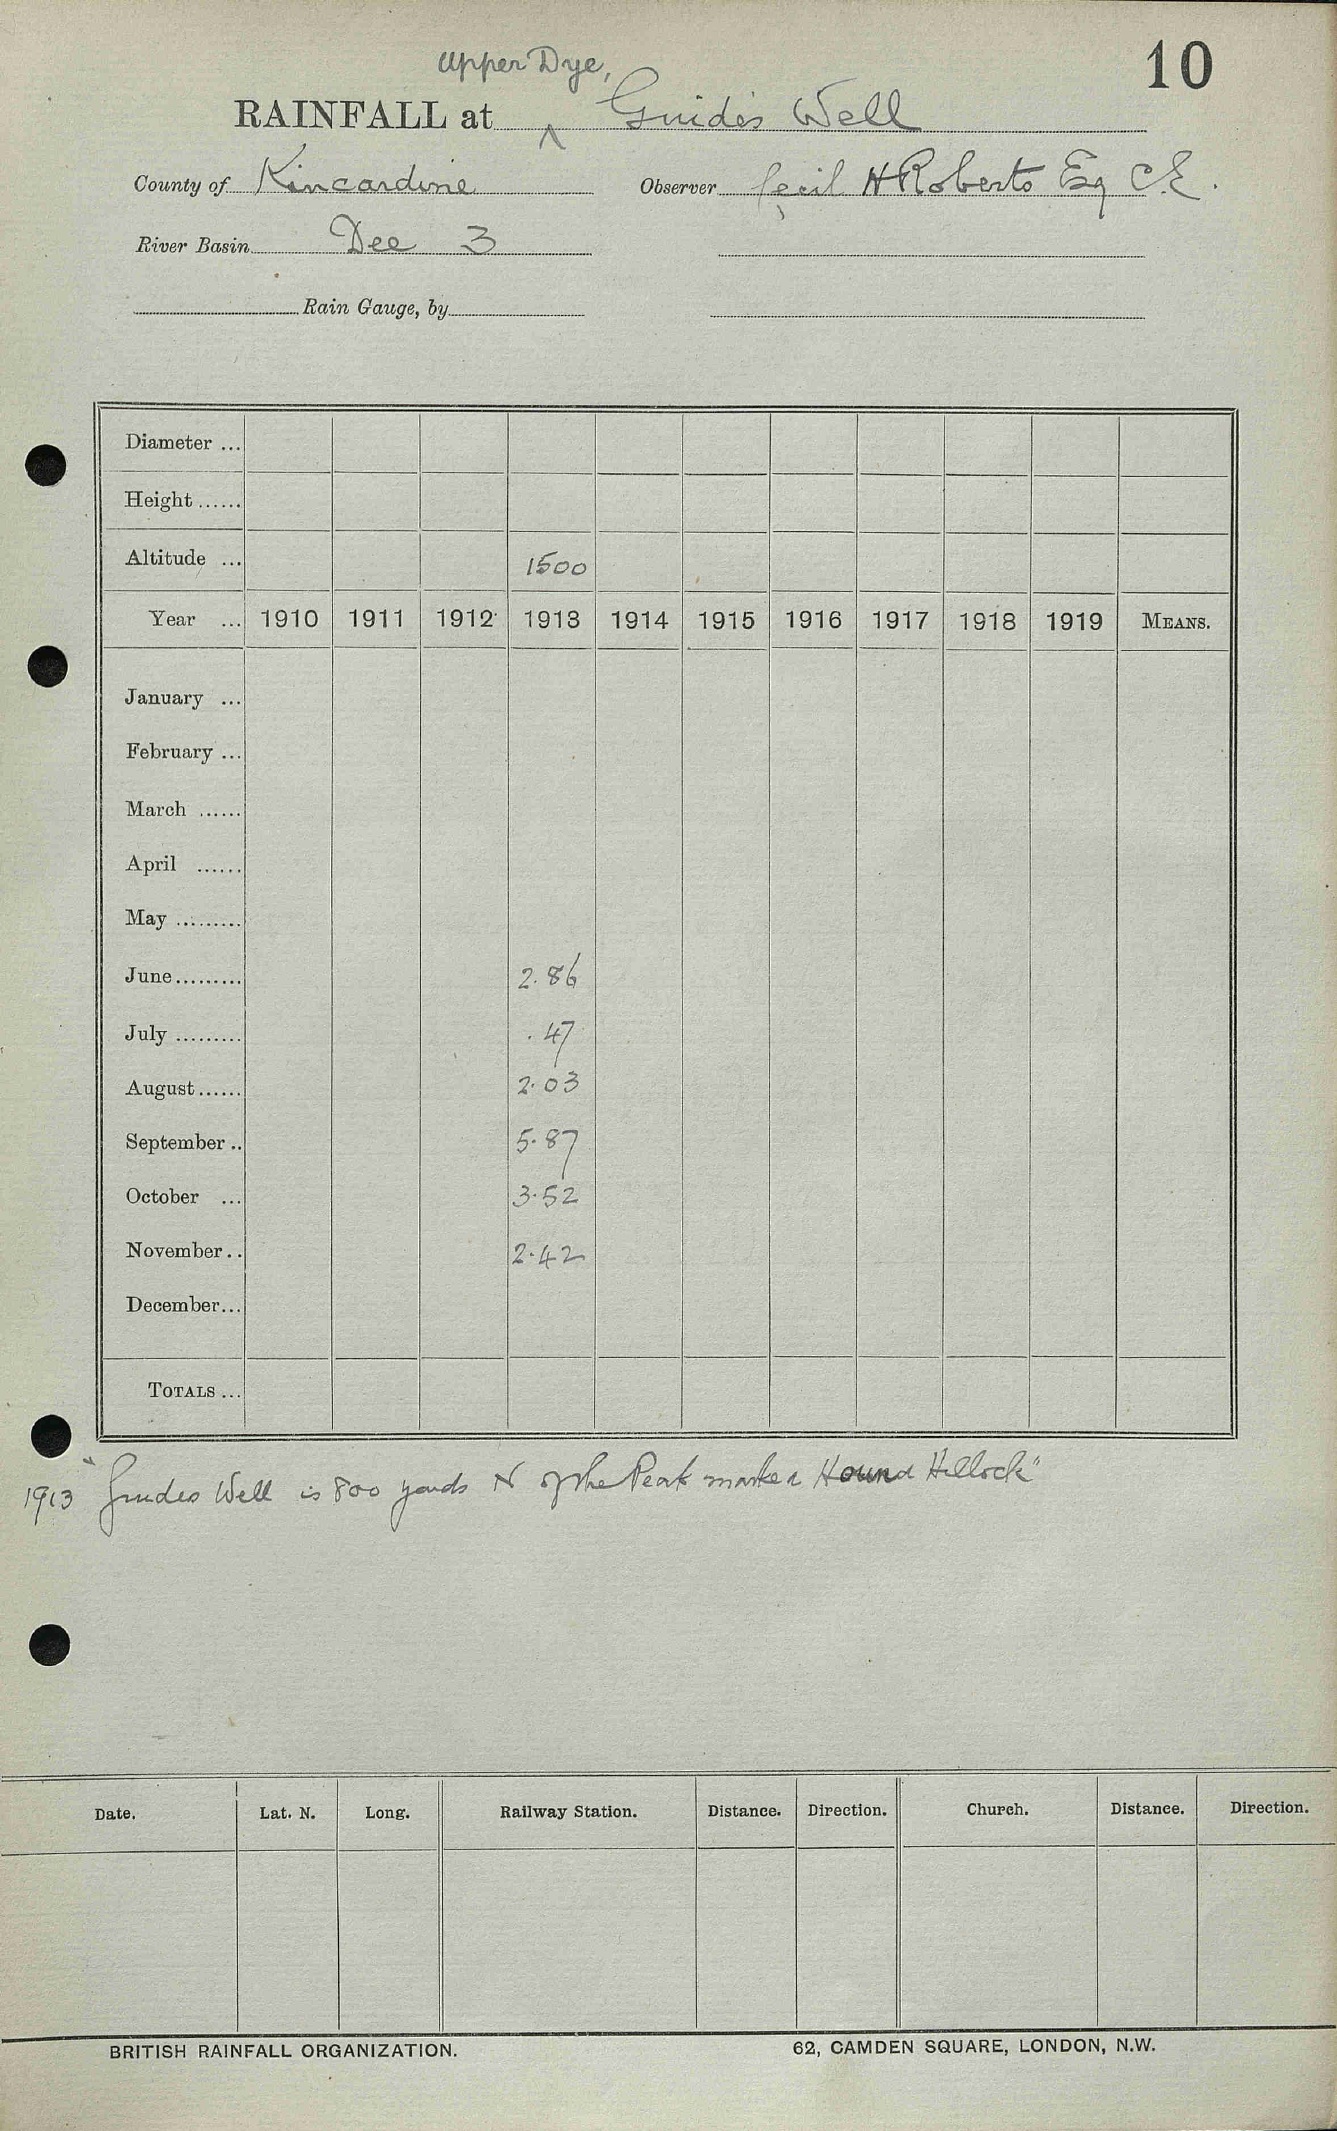 10
Upper Dye,
RAINFALL at ^ Guide's Well
County of Kincardine Observer Cecil H Roberts Esq C.E.
River Basin Dee 3
Rain Gauge, by
Diameter ...
Height ......
Altitude ... 1500
Year ... 1910 1911 1912 1913 1914 1915 1916 1917 1918 1919 MEANS.
January ...
February ...
March ......
April ......
May .........
June......... 2.86
July ......... .47
August...... 2.03
September .. 5.87
October ... 3.52
November.. 2.42
December...
TOTALS ...
1913 "Guides Well is 800 yards N of the Peak marked Hound Hillock"
Date. Lat. N. Long. Railway Station. Distance. Direction. Church. Distance. Direction.
BRITISH RAINFALL ORGANIZATION. 62, CAMDEN SQUARE, LONDON, N.W.